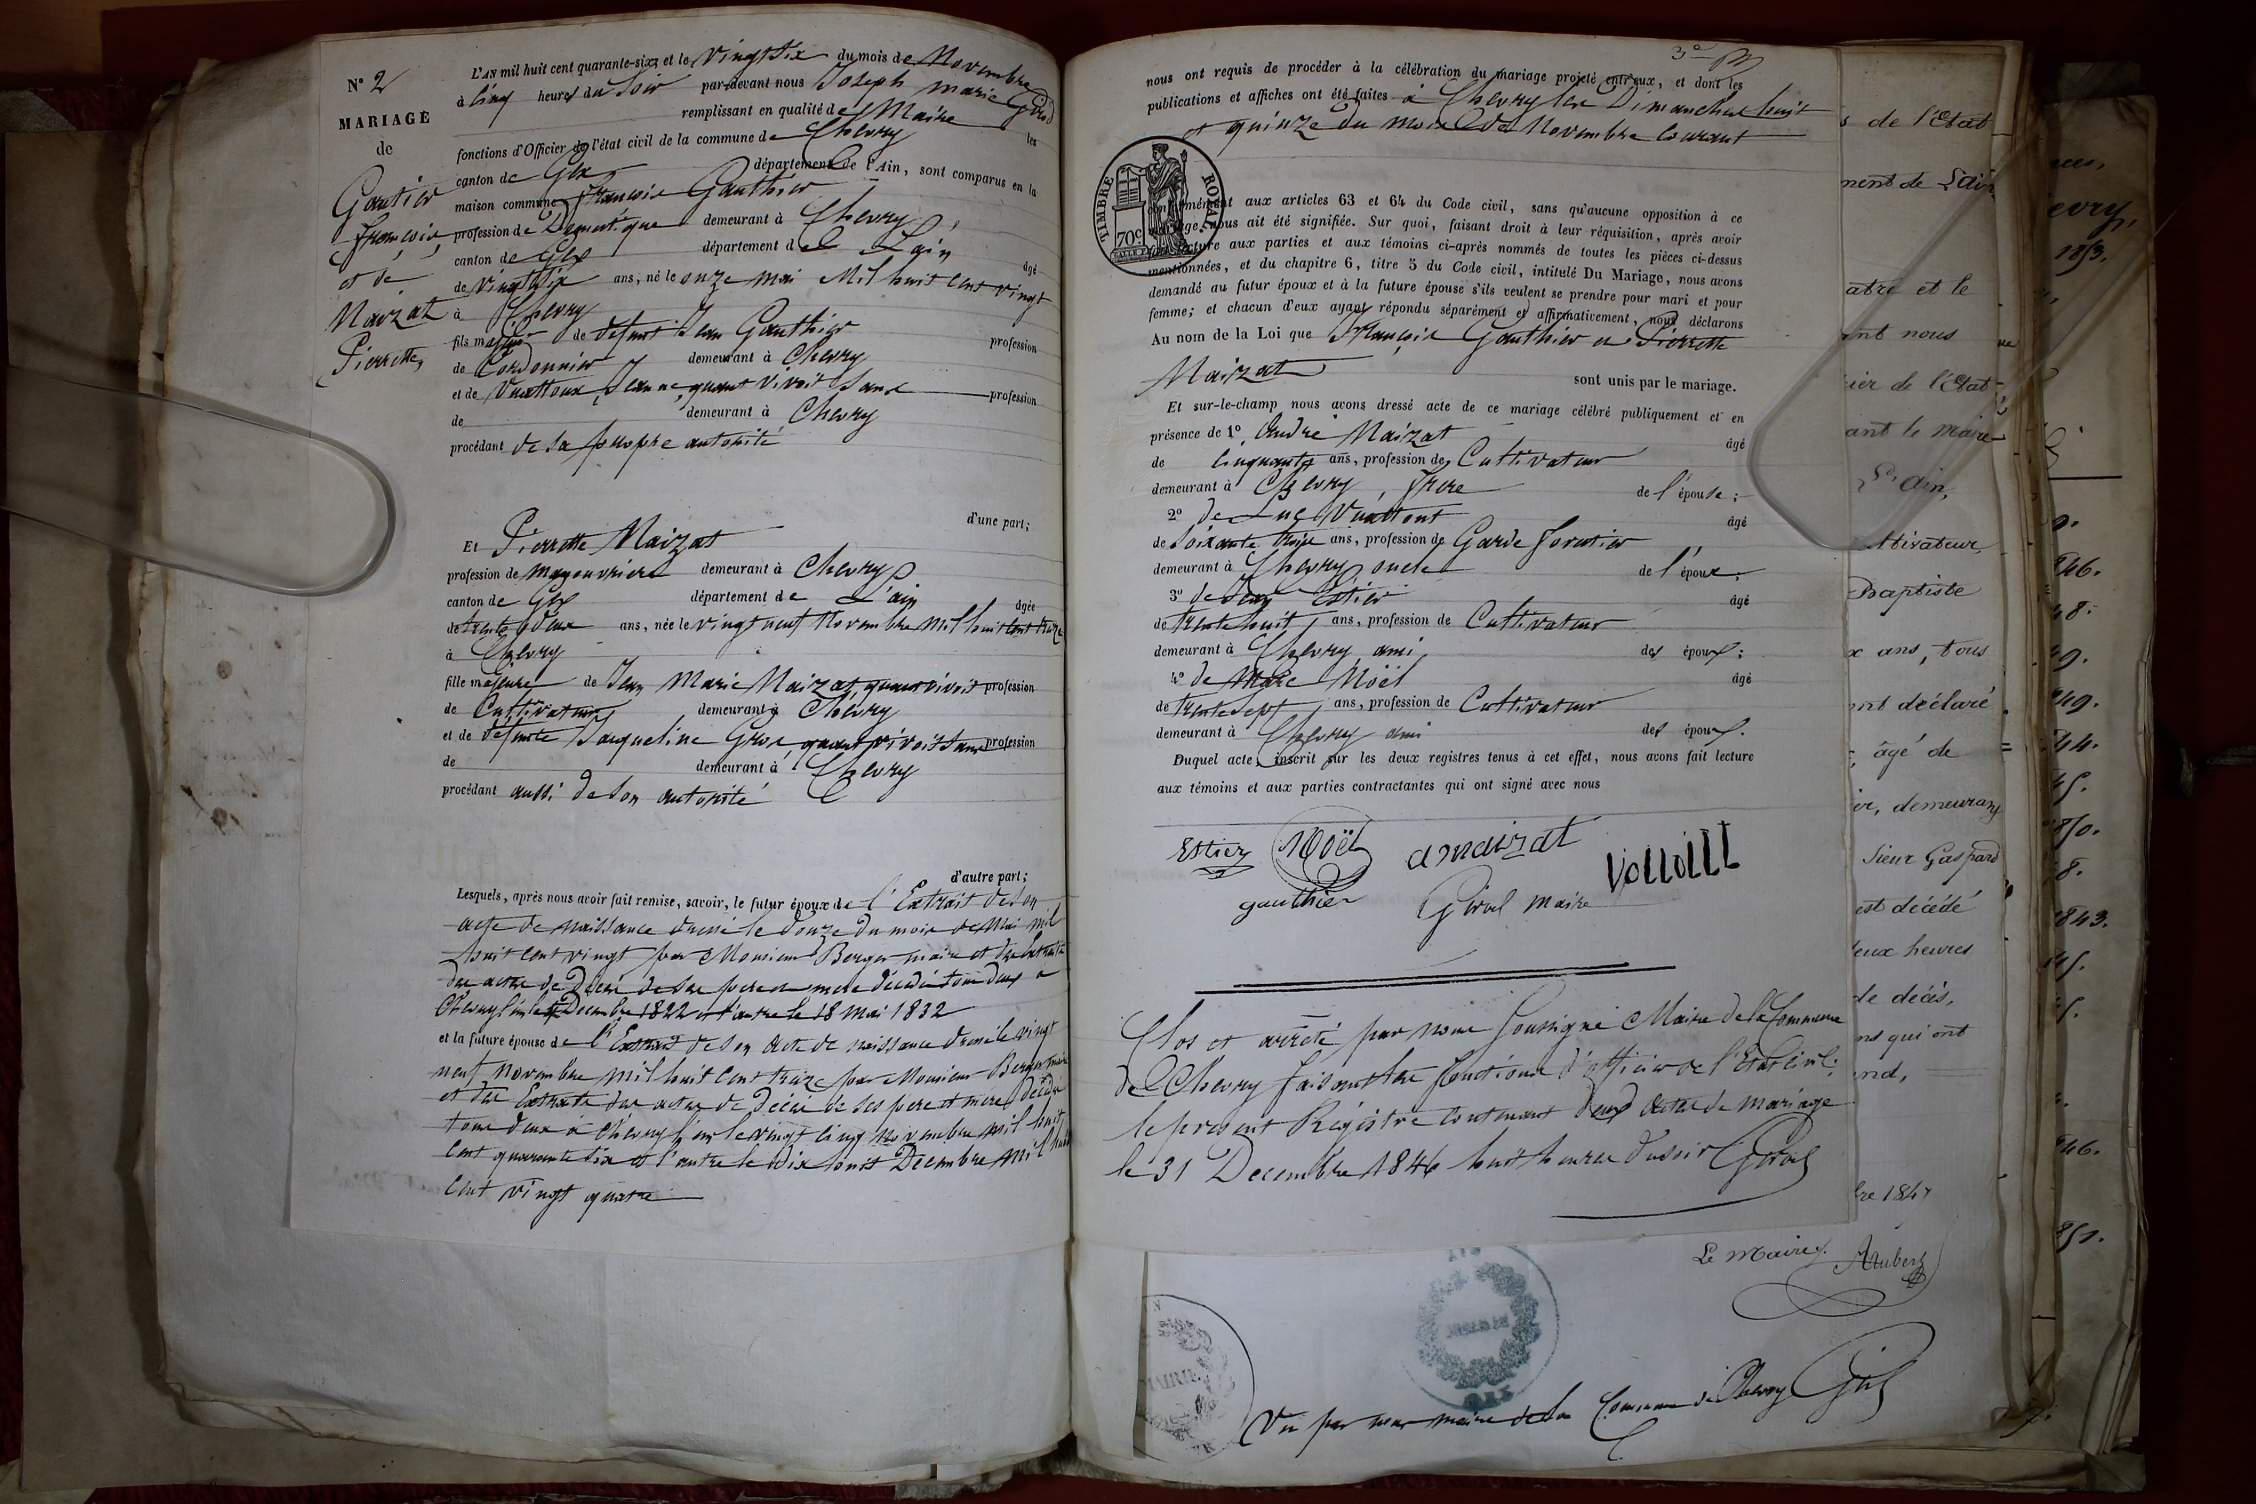 N° 2
MARIAGE
de
Gautier
François,
et de
Maizat
Pierrette,
L'AN mil huit cent quarante-six, et le vingt six du mois de Novembre
à cinq heures du Soir par-devant nous Joseph marie Girod
remplissant en qualité de Maire les
fonctions d'Officier de l'état civil de la commune de Chevry
canton de Gex département de l'Ain, sont comparus en la
maison commune François Gauthier
profession de Domestique demeurant à Chevry,
canton de Gex département de L'ain âgé
de vingt six ans, né le onze mai Mil huit cent vingt
à Chevry
fils majeur de défunt Jean Gauthier profession
de Cordonnier demeurant à Chevry
et de Jeanne, quant vivoit Sans profession
de demeurant à Chevry
procédant de sa propre autorité
d'une part;
Et Pierrette Maizat
profession de magouvriere demeurant à Chevry
canton de Gex département de L'ain âgée
de trente deux ans, née le vingt neuf Novembre mil huit cent treize
à Chevry
fille majeure de Jean Marie Maizat, quant vivoit profession
de Cultivateur demeurant à Chevry
et de défunte Jaqueline Gros, quant vivoit Sans profession
de demeurant à Chevry
procédant aussi de son autorité
d'autre part;
Lesquels, après nous avoir fait remise, savoir, le futur époux de l'Extrait de son
acte de naissance dressé le douze du mois de Mai mil
huit cent vingt par Monsieur Berger maire et des Extraits
des actes de Décès de ses pere et mere décédés tous deux a
Chevry l'un le Décembre 1822 et l'autre le 18 Mai 1832
et la future épouse de l'Extrait de son acte de naissance dressé le vingt
neuf novembre mil huit cent treize par Monsieur Berger maire
et des Extraits des actes de Décès de ses pere et mere Décédés
tous deux à Chevry l'un le vingt cinq novembre mil huit
cent quarante six et l'autre le dix huit Décembre mil huit
cent vingt quatre
nous ont requis de procéder à la célébration du mariage projeté entr'eux, et dont les
publications et affiches ont été faites à Chevry les Dimanches huit
et quinze du mois de Novembre courant
TIMBRE ROYAL
70c
conformément aux articles 63 et 64 du Code civil, sans qu'aucune opposition à ce
mariage nous ait été signifiée. Sur quoi, faisant droit à leur réquisition, après avoir
lecture aux parties et aux témoins ci-après nommés de toutes les pièces ci-dessus
mentionnées, et du chapitre 6, titre 5 du Code civil, intitulé Du Mariage, nous avons
demandé au futur époux et à la future épouse s'ils veulent se prendre pour mari et pour
femme; et chacun d'eux ayant répondu séparément et affirmativement, nous déclarons
Au nom de la Loi que François Gauthier et Pierrette
Maizat sont unis par le mariage.
Et sur-le-champ nous avons dressé acte de ce mariage célébré publiquement et en
présence de 1° André Maizat âgé
de cinquante ans, profession de Cultivateur
demeurant à Chevry, frere de l'épouse;
2° de Luc âgé
de soixante trois ans, profession de Garde forestier
demeurant à Chevry oncle de l'époux;
3° de Jean Estier âgé
de trente huit ans, profession de Cultivateur
demeurant à Chevry ami des époux;
4° de Marc Noël âgé
de trente sept ans, profession de Cultivateur
demeurant à Chevry ami des époux.
Duquel acte, inscrit sur les deux registres tenus à cet effet, nous avons fait lecture
aux témoins et aux parties contractantes qui ont signé avec nous
Estier Noël amaizat
gauthier Girod maire
Clos et arrêté par nous soussigné Maire de la Commune
de Chevry faisant les fonctions d'officier de l'Etat civil:
le present Régistre contenant deux actes de mariage
le 31 Decembre 1846 huit heures du soir Girod
Le Maire Aubert
Vu par nous maire de la Commune de Chevry
s de l'Etat
ment de L'ain
atre et le
ant nous
cier de l'Etat
ant le maire
L'ain,
ltivateur,
Baptiste
x ans, tous
ont déclaré
âgé de
er, demeurant
Sieur Gaspard
est décédé
deux heures
de décès,
ns qui ont
bre 1847
evry,
1853.